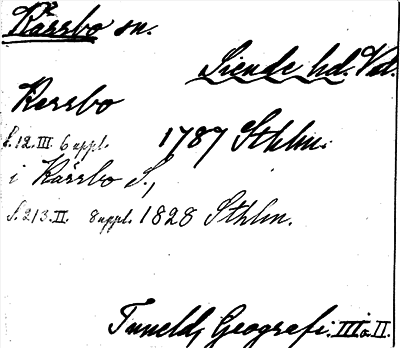 Kärrbo sn.
Siende hd. Vtl.
Kerrbo
S. 12. III. 6 uppl. 1787 Sthlm.
i Kärrbo S.,
S. 213. II. 8 uppl. 1828 Sthlm.
Tunelds Geografi. III o. II.